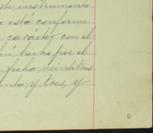 este instrumento
está conforme
carácter con el
hecho por el
fecha, veintitres
y tres, y